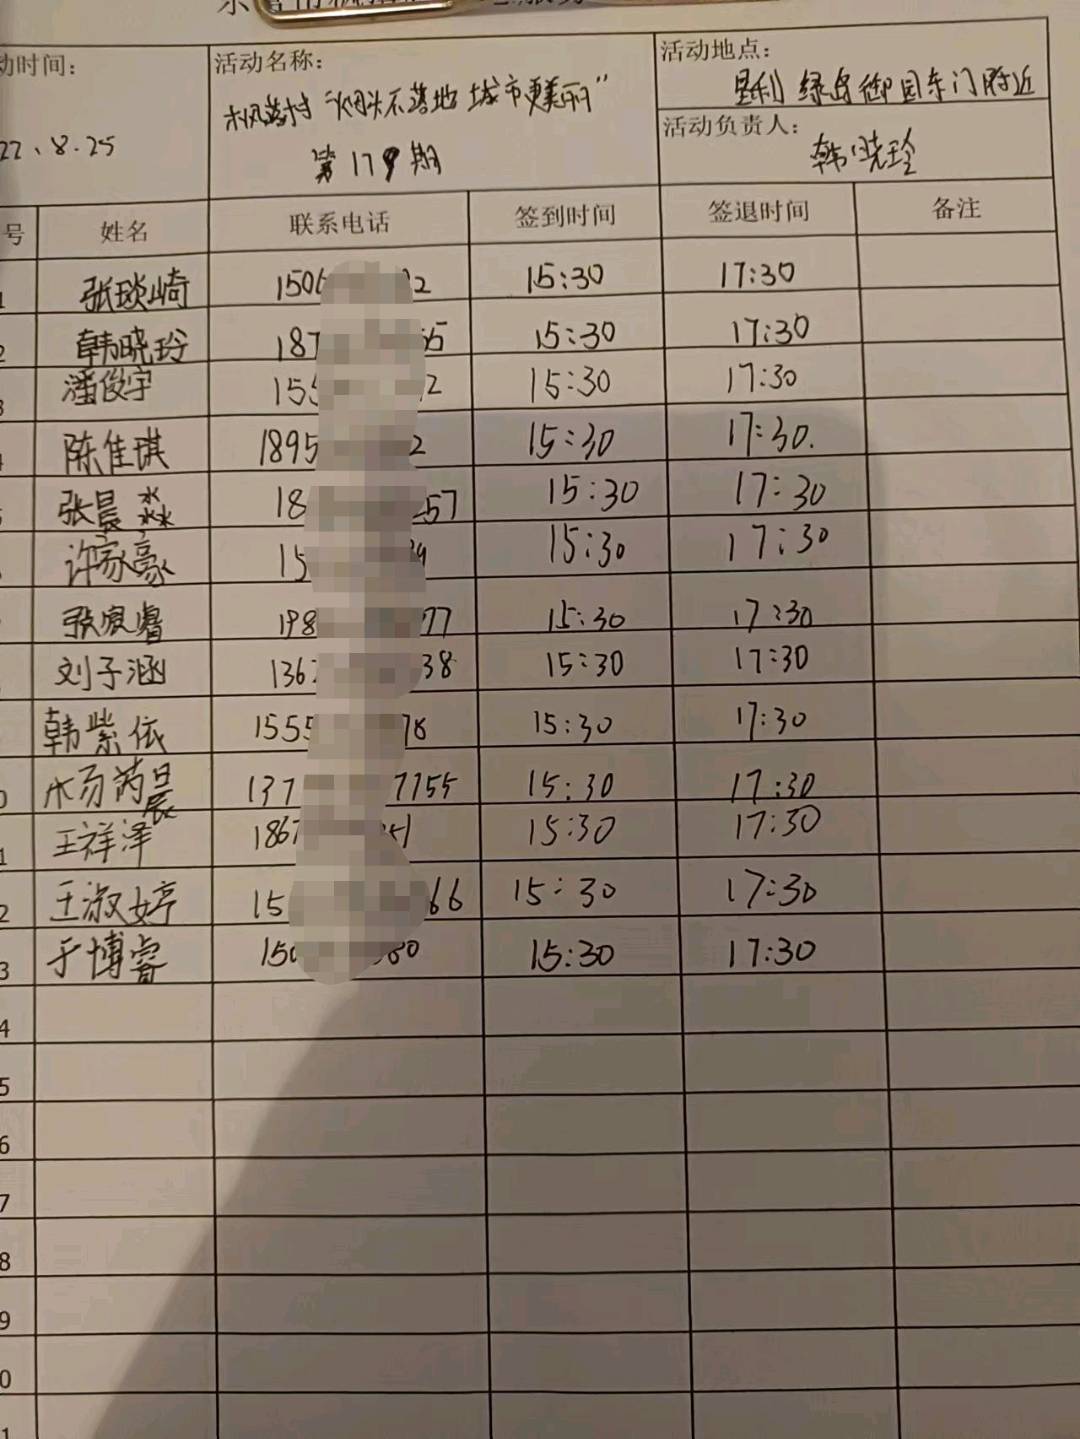 动时间：
22、8.25
活动名称：
"烟头不落地 城市更美丽"
第179期
活动地点：
垦利 绿岛御园东门附近
活动负责人：
韩晓玲
号 姓名 联系电话 签到时间 签退时间 备注
1 张琰崎 150 2 15:30 17:30
2 韩晓玲 187 15:30 17:30
3 潘俊宇 155 2 15:30 17:30
4 陈佳琪 1895 2 15:30 17:30.
5 张晨淼 18 257 15:30 17:30
许家豪 15 15:30 17:30
张宸睿 198 77 15:30 17:30
刘子涵 136 38 15:30 17:30
韩紫依 1555 78 15:30 17:30
0 杨芮晨 137 7755 15:30 17:30
1 王祥泽 186 51 15:30 17:30
2 王淑婷 15 66 15:30 17:30
3 于博睿 150 80 15:30 17:30
4
5
6
7
8
9
0
1